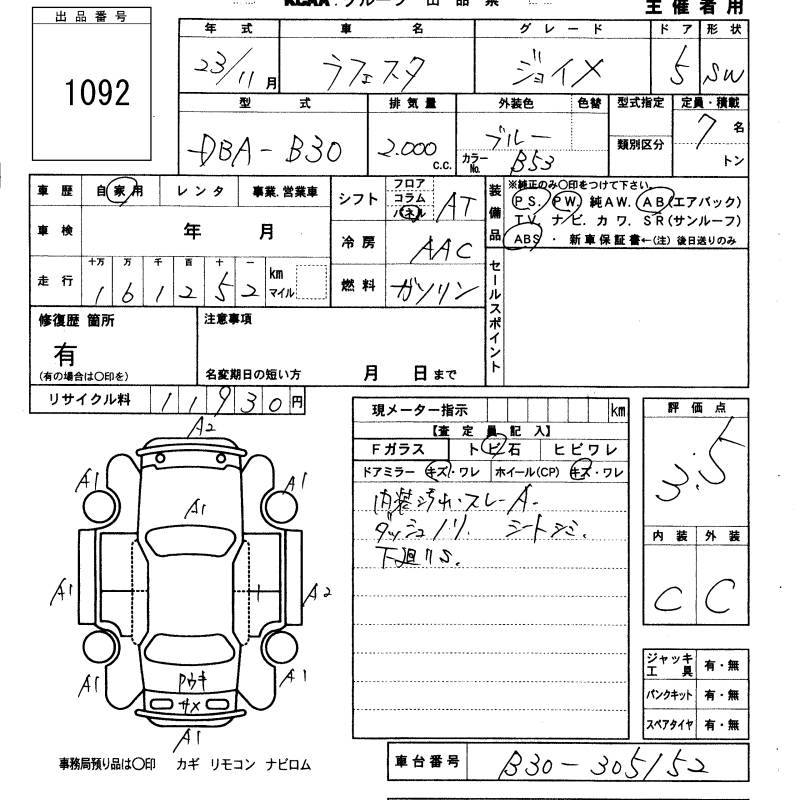 KCAA. グループ 出品票
主催者用
出品番号
1092
年式 車名 グレード ドア 形状
23/11月 ラフェスタ ジョイメ 5 SW
型式 排気量 外装色 色替 型式指定 定員・積載
DBA-B30 2.000 c.c. ブルー 類別区分 7名
カラーNo. B53 トン
車歴 自家用 レンタ 事業.営業車
シフト フロア コラム パネル AT
装備品 ※純正のみ〇印をつけて下さい。
PS. PW. 純AW. AB(エアバック)
TV. ナビ. カワ. SR(サンルーフ)
ABS ・ 新車保証書←(注) 後日送りのみ
車検 年 月
冷房 AAC
十万 万 千 百 十 一
走行 1 6 1 2 5 2 km マイル
燃料 ガソリン
セールスポイント
修復歴 箇所
有
(有の場合は〇印を)
注意事項
名変期日の短い方 月 日まで
リサイクル料 11930円
現メーター指示 km
【査定員記入】
Fガラス トビ石 ヒビワレ
ドアミラー キズ・ワレ ホイール(CP) キズ・ワレ
内装汚れ・スレ-A-
ダッシュノリ. シートシミ.
下廻りS.
評価点
3.5
内装 外装
C C
A2
A1 A1
A1
A1 A2
A1 A1
Pウキ
サメ
A1
ジャッキ工具 有・無
パンクキット 有・無
スペアタイヤ 有・無
事務局預り品は〇印 カギ リモコン ナビロム
車台番号 B30-305152